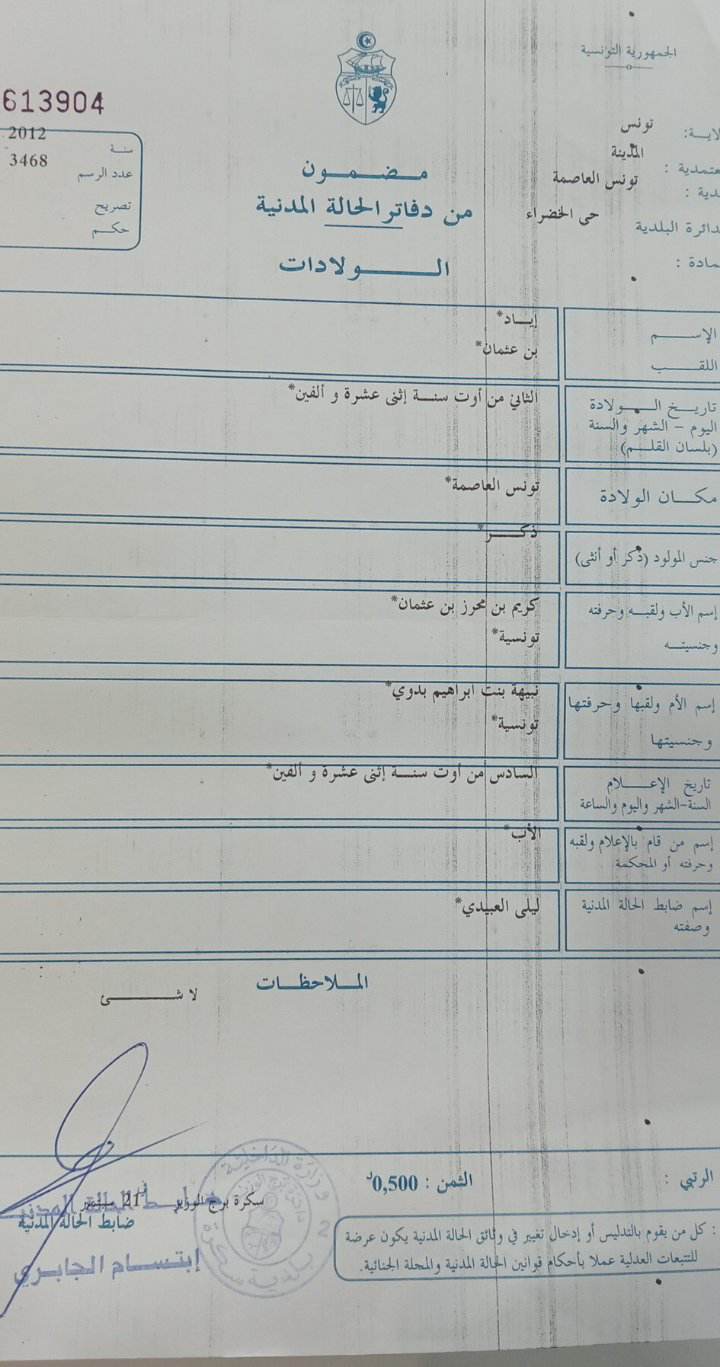 الجمهورية التونسية
613904
سنة 2012
عدد الرسم 3468
تصريح
حكم
مضمون
من دفاتر الحالة المدنية
الولادات
لاية: تونس
عتمدية : المدينة
دية : تونس العاصمة
دائرة البلدية حى الخضراء
مادة :
الإسم إياد*
اللقب بن عثمان*
تاريخ الولادة
اليوم - الشهر والسنة
(بلسان القلم)
الثاني من أوت سنة إثنى عشرة و ألفين*
مكان الولادة تونس العاصمة*
جنس المولود (ذكر أو أنثى) ذكر*
إسم الأب ولقبه وحرفته
وجنسيته
كريم بن محرز بن عثمان*
تونسية*
إسم الأم ولقبها وحرفتها
وجنسيتها
نبيهة بنت ابراهيم بدوي*
تونسية*
تاريخ الإعلام
السنة-الشهر واليوم والساعة
السادس من أوت سنة إثنى عشرة و ألفين*
إسم من قام بالإعلام ولقبه
وحرفته أو المحكمة
الأب*
إسم ضابط الحالة المدنية
وصفته
ليلى العبيدي*
الملاحظات
لا شئ
الرتبي :
الثمن : 0,500د
سكرة برج الوزير في 21 سبتمبر
ضابط الحالة المدنية
ضابط الحالة المدنية
إبتسام الجابري
وزارة الداخلية
بلدية سكرة
2
: كل من يقوم بالتدليس أو إدخال تغيير في وثائق الحالة المدنية يكون عرضة
للتتبعات العدلية عملا بأحكام قوانين الحالة المدنية والمجلة الجنائية.